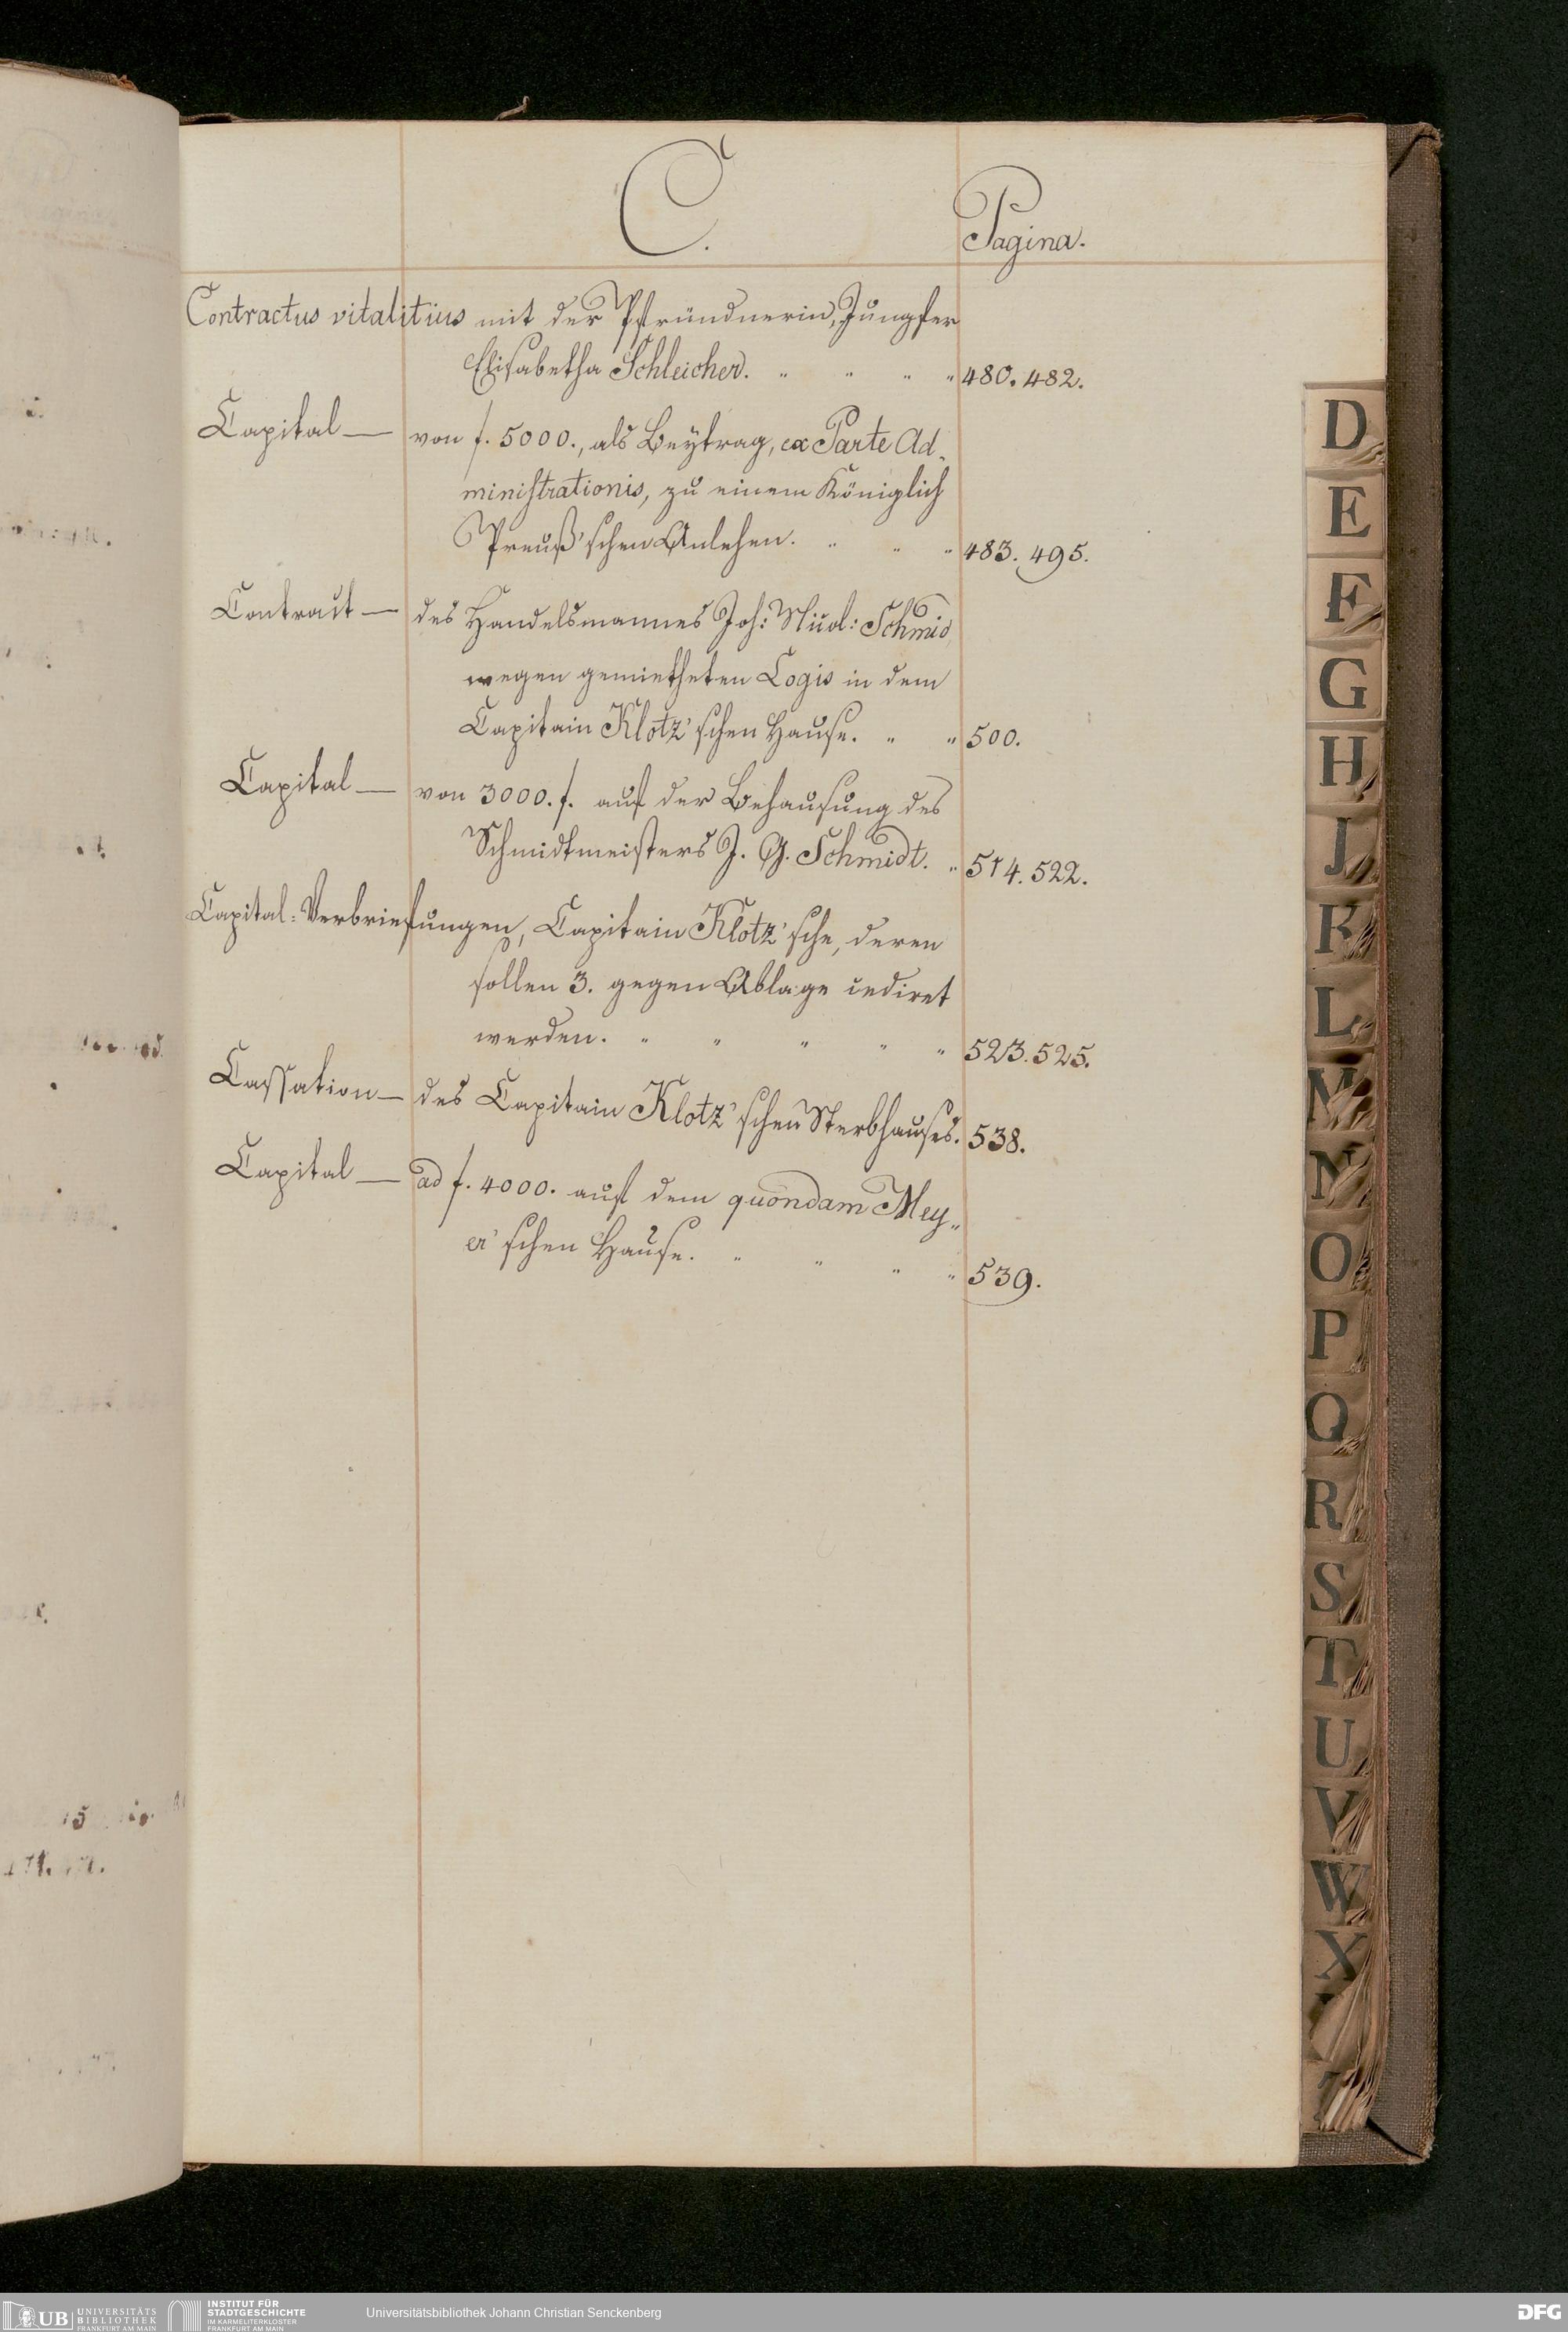 C.
Pagina.
Contractus vitalitius mit der Pfründnerin, Jungfer
Elisabetha Schleicher. " " " " 480. 482.
Capital — von f. 5000., als Beÿtrag, ex Parte Ad-
ministrationis, zu einem Königlich
Preuß'schen Anlehen. " " " 483. 495.
Contract — des Handelsmannes Joh: Nicol: Schmid
wegen gemietheten Logis in dem
Capitain Klotz'schen Hause. " " 500.
Capital — von 3000. f. auf der Behausung des
Schmidtmeisters J. G. Schmidt. " 514. 522.
Capital-Verbriefungen, Capitain Klotz'sche, deren
sollen 3. gegen Ablage cediret
werden. " " " " " 523. 525.
Cassation — des Capitain Klotz'schen Sterbhauses. 538.
Capital — ad f. 4000. auf dem quondam Mey-
er'schen Hause. " " " " 539.
D
E
F
G
H
J
K
L
M
N
O
P
Q
R
S
T
U
V
W
X
UB
UNIVERSITÄTS
BIBLIOTHEK
FRANKFURT AM MAIN
INSTITUT FÜR
STADTGESCHICHTE
IM KARMELITERKLOSTER
FRANKFURT AM MAIN
Universitätsbibliothek Johann Christian Senckenberg
DFG